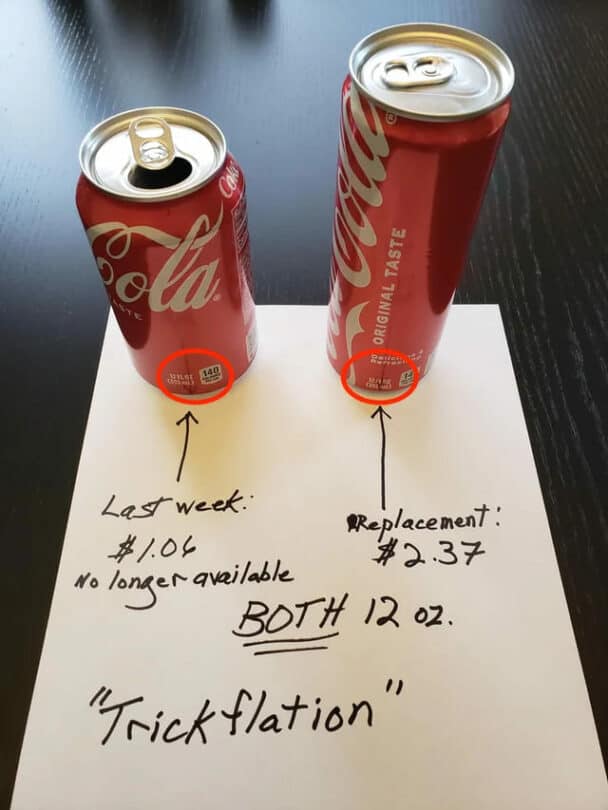 Cola
Coke
TASTE
12 FL OZ
(355 mL)
140
Coca-Cola
®
ORIGINAL TASTE
Delicious &
Refreshing
12 FL OZ
(355 mL)
14
Last week:
$1.06
No longer available
Replacement:
$2.37
BOTH 12 oz.
"Trickflation"